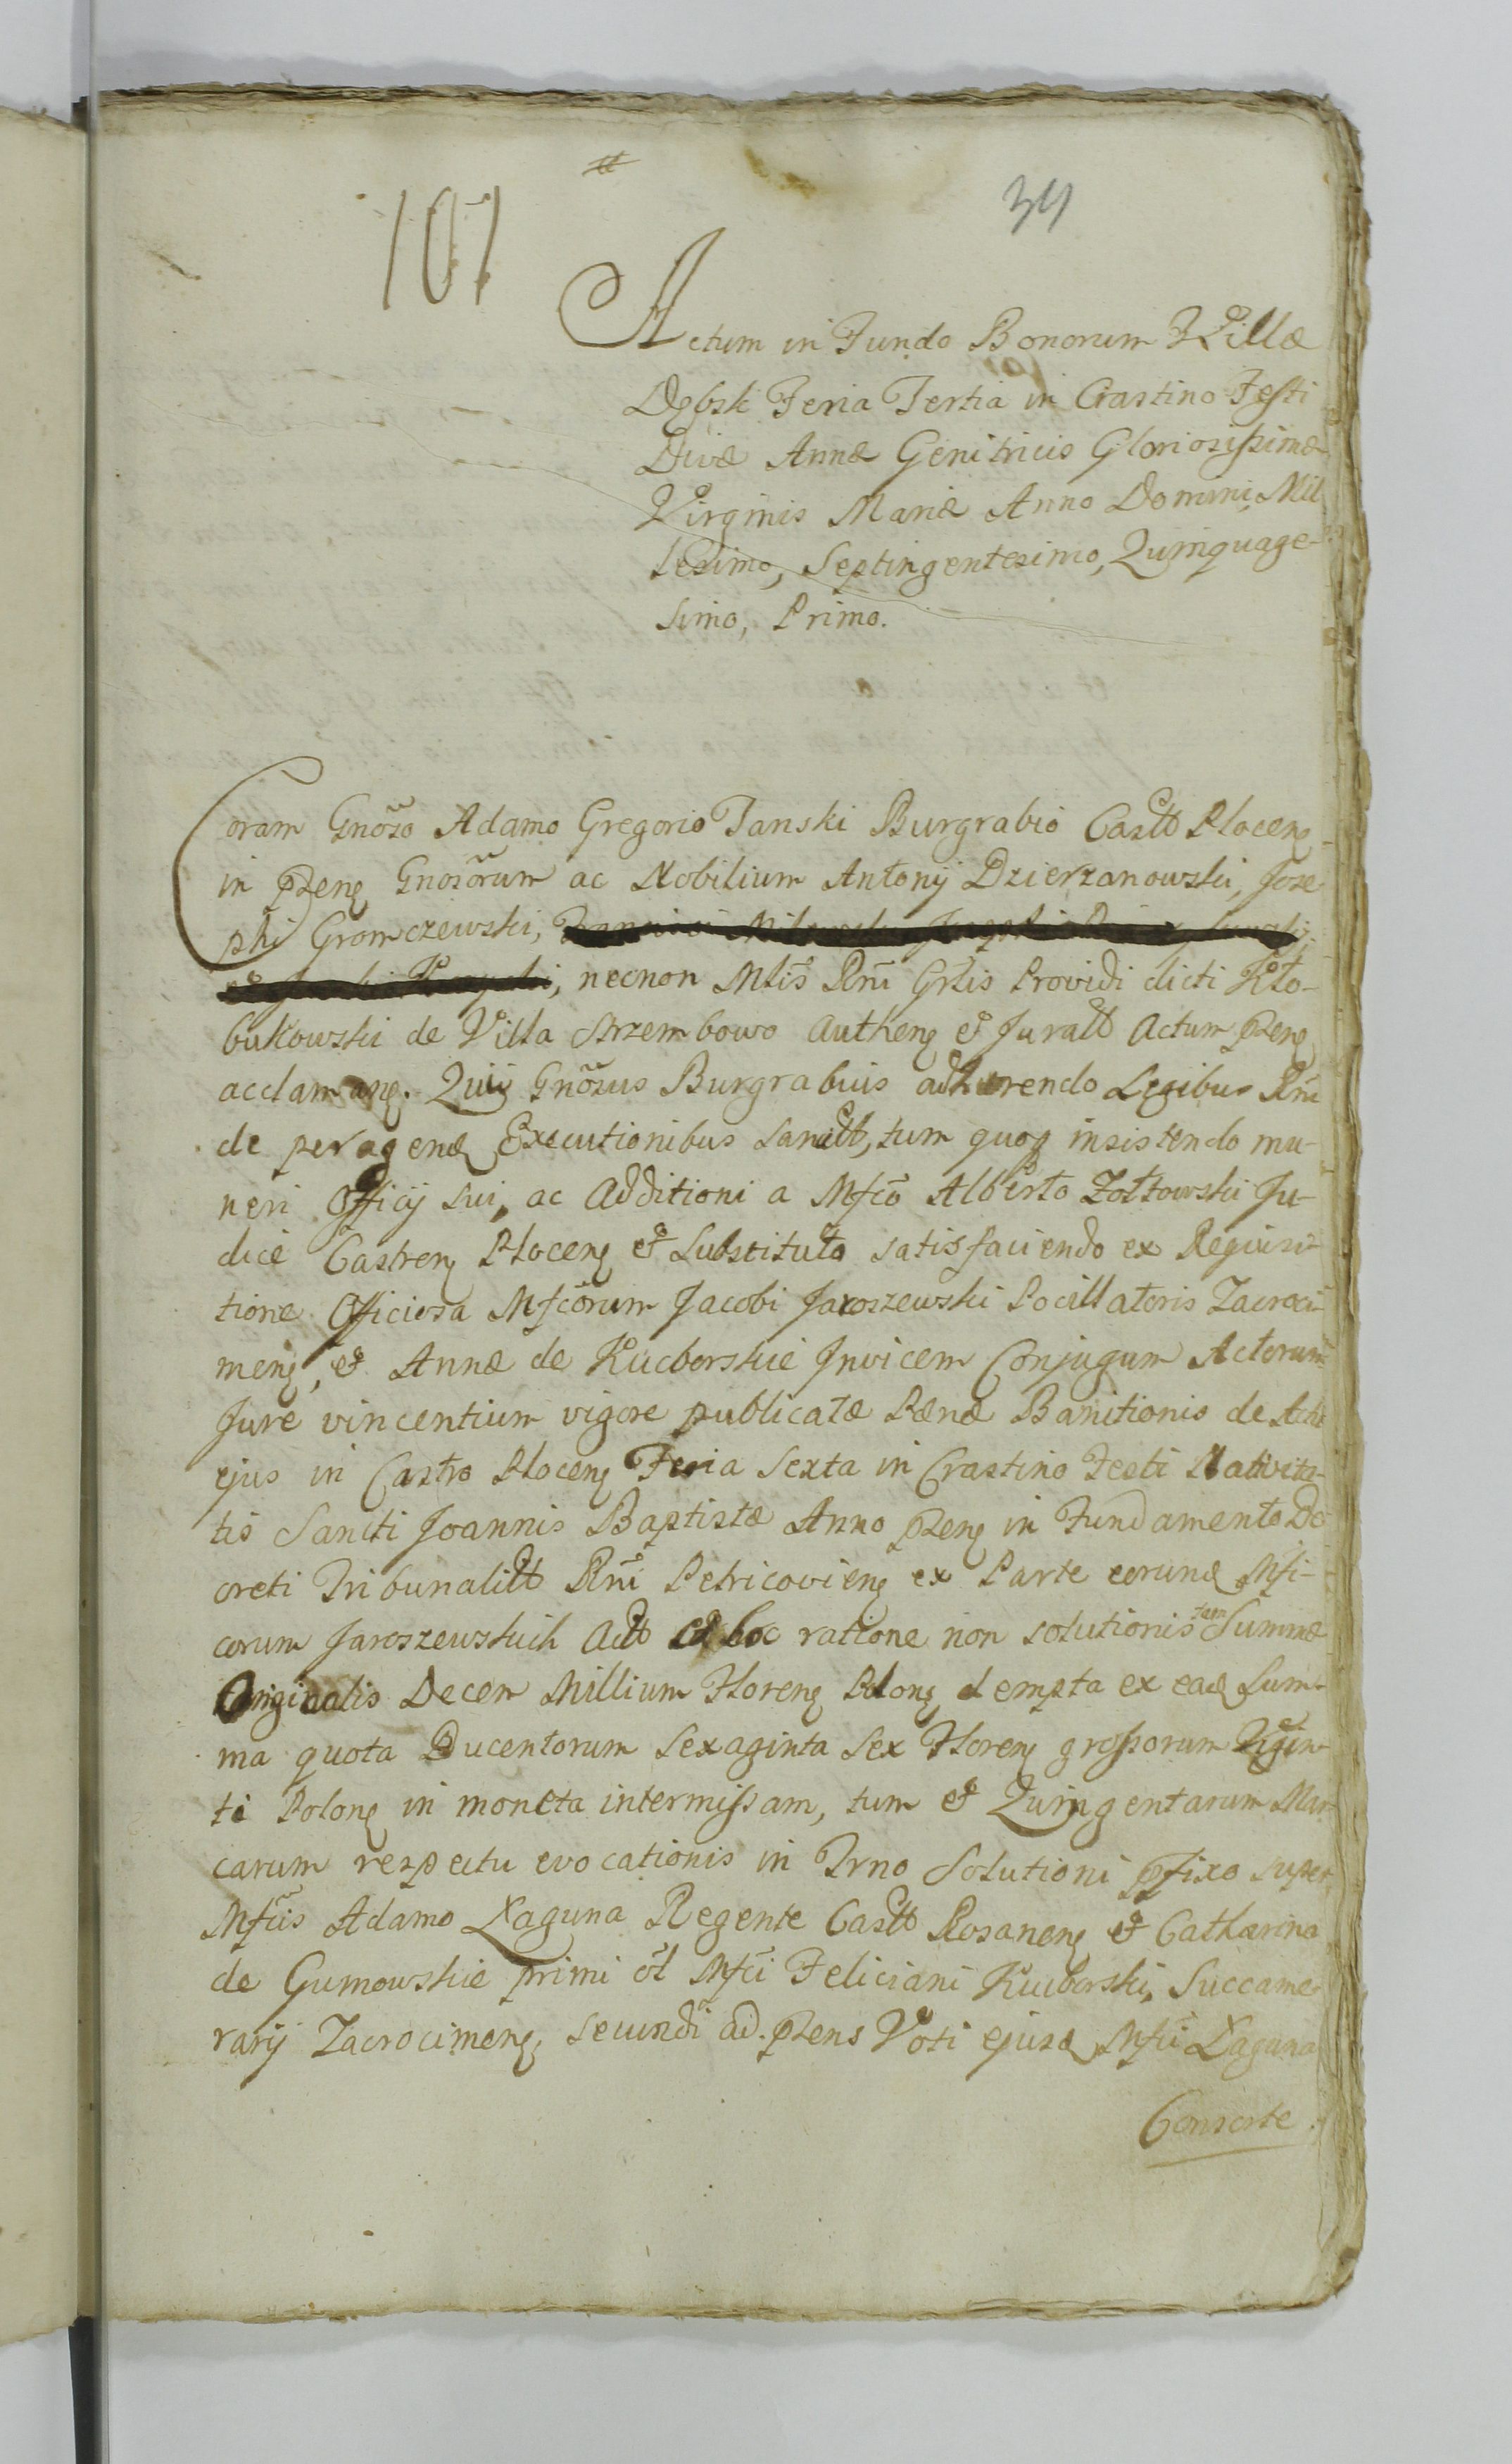 101
34
Actum in Fundo Bonorum Villæ
Dębsk Feria Tertia in Crastino Festi
Divæ Annæ Genitricis Gloriosissimæ
Virginis Mariæ Anno Domini Mil
lesimo, Septingentesimo, Quinquage-
simo, Primo.
Coram Gnoso Adamo Gregorio Tanski Burgrabio Castr Plocens
in pñens Gnosorum ac Nobilium Antonij Dzierzanowski, Jose
phi Gromczewski,
necnon Mlis Rni Gñlis Providi dicti Kło-
bukowski de Villa Strzembowo authen et Jurat Actum pñens
acclaman. Quiq Gnosus Burgrabius adhærendo Legibus Rni
de peragend Executionibus sancit, tum quoq insistendo mu-
neri Officij sui, ac Additioni a Mfco Alberto Zołtowski Ju-
dice Castren Plocens et Substituto satisfaciendo ex Requisi-
tione Officiosa Mfcorum Jacobi Jaroszewski Pocillatoris Zacroci-
mens, et Annæ de Kucborskie Invicem Conjugum Actorum
Jure vincentium vigore publicatæ Pænæ Banitionis de Actu
ejus in Castro Plocens Feria Sexta in Crastino Festi Nativita-
tis Sancti Joannis Baptistæ Anno pñens in Fundamento De
creti Tribunalit Rni Petricoviens ex Parte eorund Mfi-
corum Jaroszewskich Act ratione non solutionis tam Summæ
Originalis Decem Millium Floren Polon dempta ex ead Sum-
ma quota Ducentorum Sexaginta Sex Floren grossorum Vigin
ti Polon in moneta intermissam, tum et Quingentarum Mar
carum respectu evocationis in Trno Solutioni pfixo super
Mfcis Adamo Łaguna Regente Castr Rosanens et Catharina
de Gumowskie primi ol Mfci Feliciani Kucborski, Succame-
rarij Zacrocimens, secundi ad pñens Voti ejusd Mfci Łaguna
Consorte